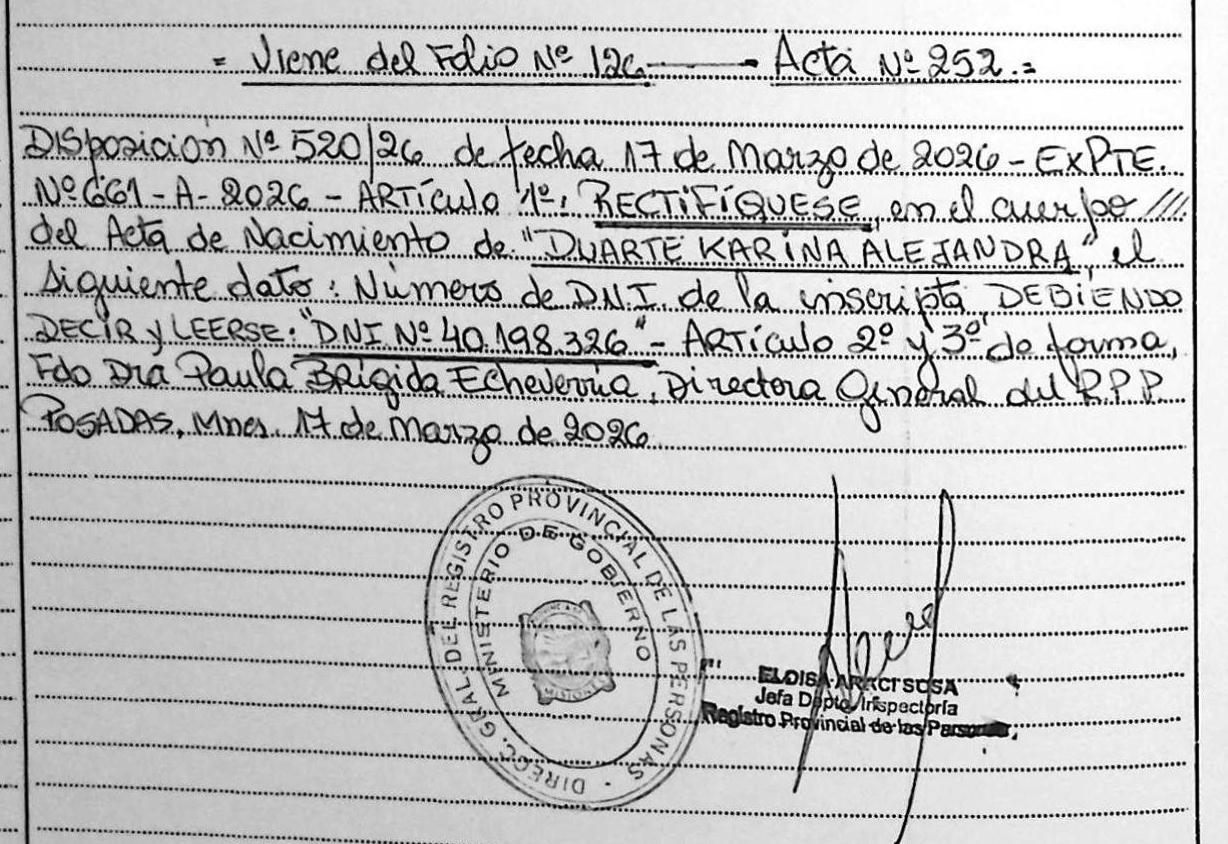 = Viene del Folio Nº 126.——— Acta Nº 252.=
Disposición Nº 520/26 de fecha 17 de Marzo de 2026 - EXPTE.
Nº 661-A-2026 - ARTículo 1º: RECTIFÍQUESE, en el cuerpo ///.
del Acta de Nacimiento de "DUARTE KARINA ALEJANDRA", el
siguiente dato: Número de D.N.I. de la inscripta, DEBIENDO
DECIR y LEERSE: "DNI Nº 40.198.326" - ARTículo 2º y 3º de forma,
Fdo Dra Paula Brigida Echeverria, Directora General del R.P.P.
POSADAS, Mnes. 17 de Marzo de 2026
DIRECC. GRAL. DEL REGISTRO PROVINCIAL DE LAS PERSONAS
MINISTERIO DE GOBIERNO
MISIONES
ELOISA ARACI SOSA
Jefa Dpto. Inspectoría
Registro Provincial de las Personas